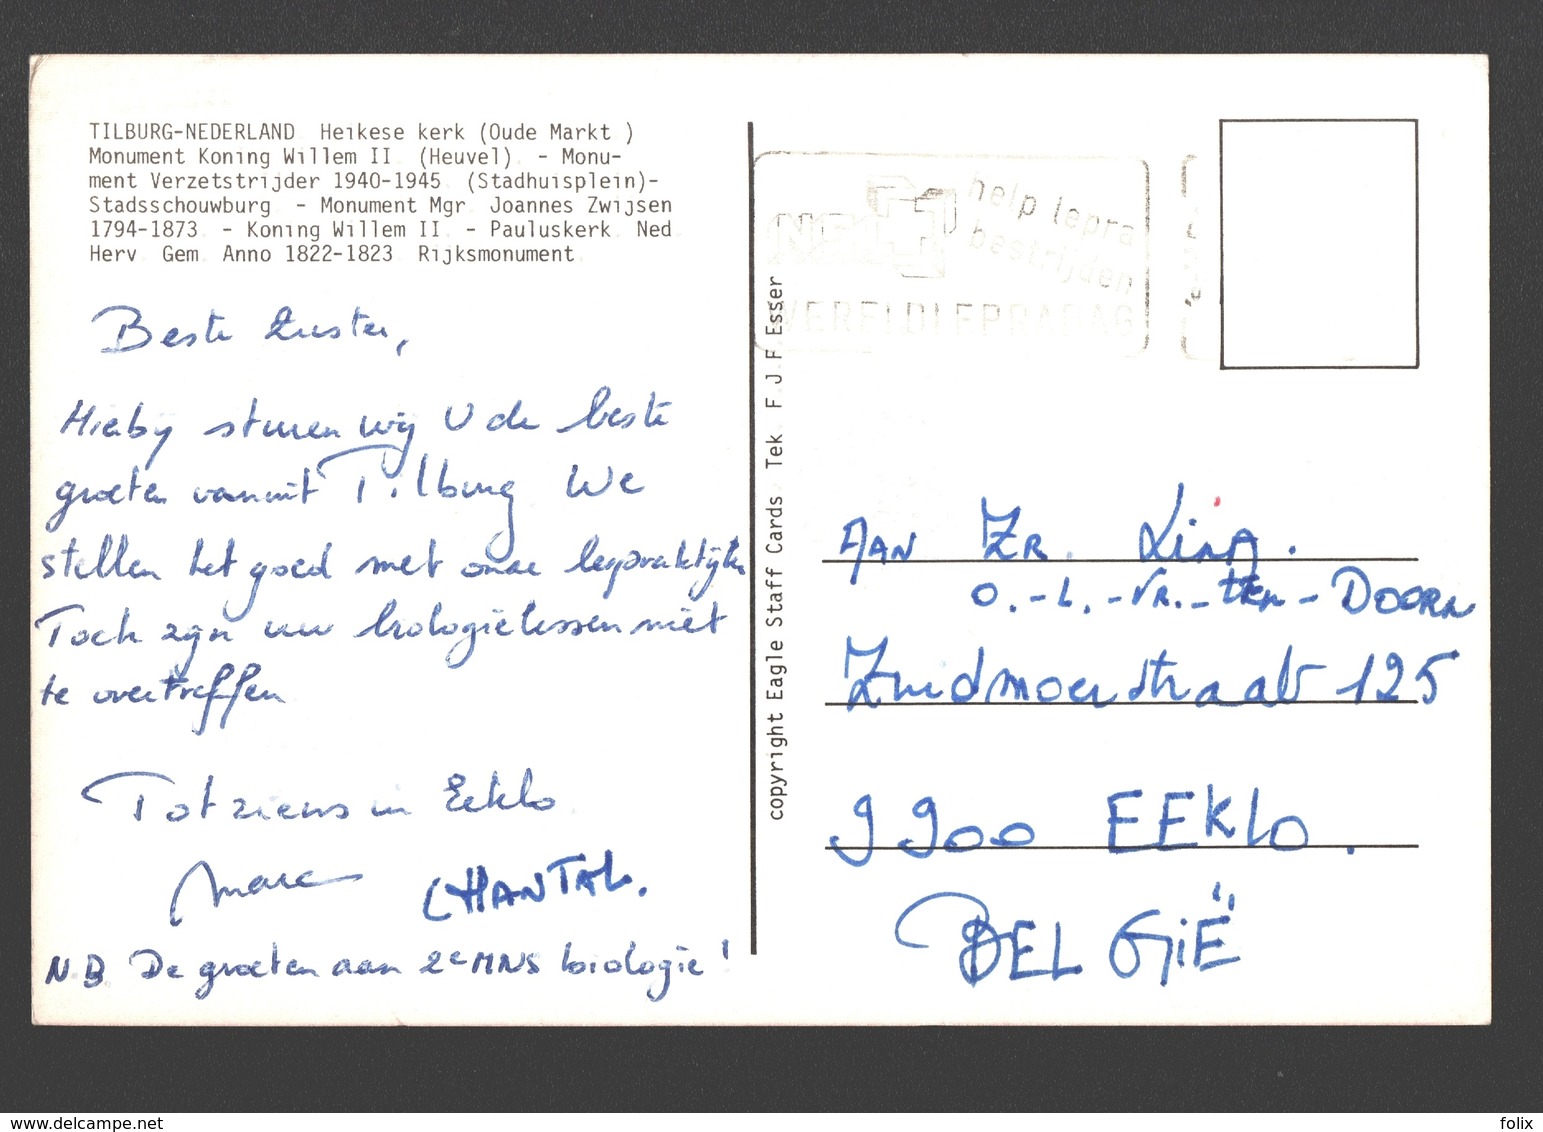 TILBURG-NEDERLAND Heikese kerk (Oude Markt )
Monument Koning Willem II (Heuvel) - Monu-
ment Verzetstrijder 1940-1945 (Stadhuisplein)-
Stadsschouwburg - Monument Mgr Joannes Zwijsen
1794-1873 - Koning Willem II - Pauluskerk Ned
Herv Gem Anno 1822-1823 Rijksmonument
Beste Zuster,
Hierbij sturen wij U de beste
groeten vanuit Tilburg We
stellen het goed met onze lespraktijken
Toch zijn uw biologielessen niet
te overtreffen
Tot ziens in Eeklo
Marc CHANTAL.
N.B. De groeten aan 2e MNS biologie!
copyright Eagle Staff Cards Tek F.J.F Esser
help lepra
bestrijden
WERELDLEPRADAG
AAN ZR. LINA.
O.-L.-VR.-TEN-DOORN
Zuidmoerstraat 125
9900 EEKLO.
BELGIË
delcampe.net
folix